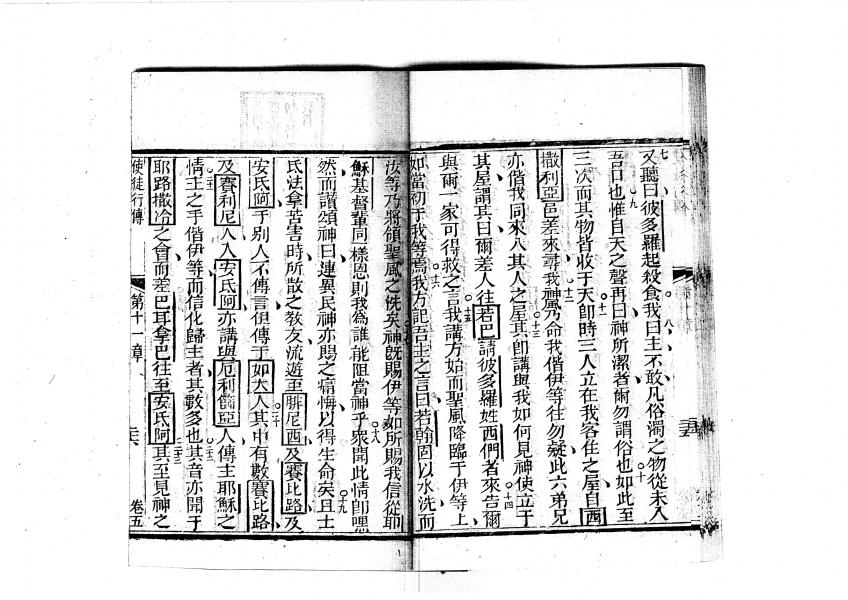 又聽曰彼多羅起殺食我曰主不敢凡俗濁之物從未入
吾口也惟自天之聲再曰神所潔者爾勿謂俗也如此至
三次而其物皆收于天卽時三人立在我客住之屋自西
撒利亞邑差來尋我神風乃命我偕伊等往勿疑此六弟兄
亦偕我同來入其人之屋其卽講與我如何見神使立于
其屋謂其曰爾差人往若巴請彼多羅姓西們者來告爾
與爾一家可得救之言我講方始而聖風降臨于伊等上
如當初于我等焉我方記吾主之言曰若翰固以水洗而
汝等乃將領聖風之洗矣神旣賜伊等如所賜我信從耶
穌基督輩同樣恩則我為誰能阻當神乎眾聞此情卽嘿
然而讚頌神曰連異民神亦賜之痛悔以得生命矣且士
氏法拿苦害時所散之教友流遊至腓尼西及賽比路及
安氏阿于別人不傳言但傳于如大人其中有數賽比路
及賽利尼人入安氏阿亦講與厄利箇亞人傳主耶穌之
情主之手偕伊等而信化歸主者其數多也其音亦聞于
耶路撒冷之會而差巴耳拿巴往至安氏阿其至見神之
使徒行傳 第十一章 卷五